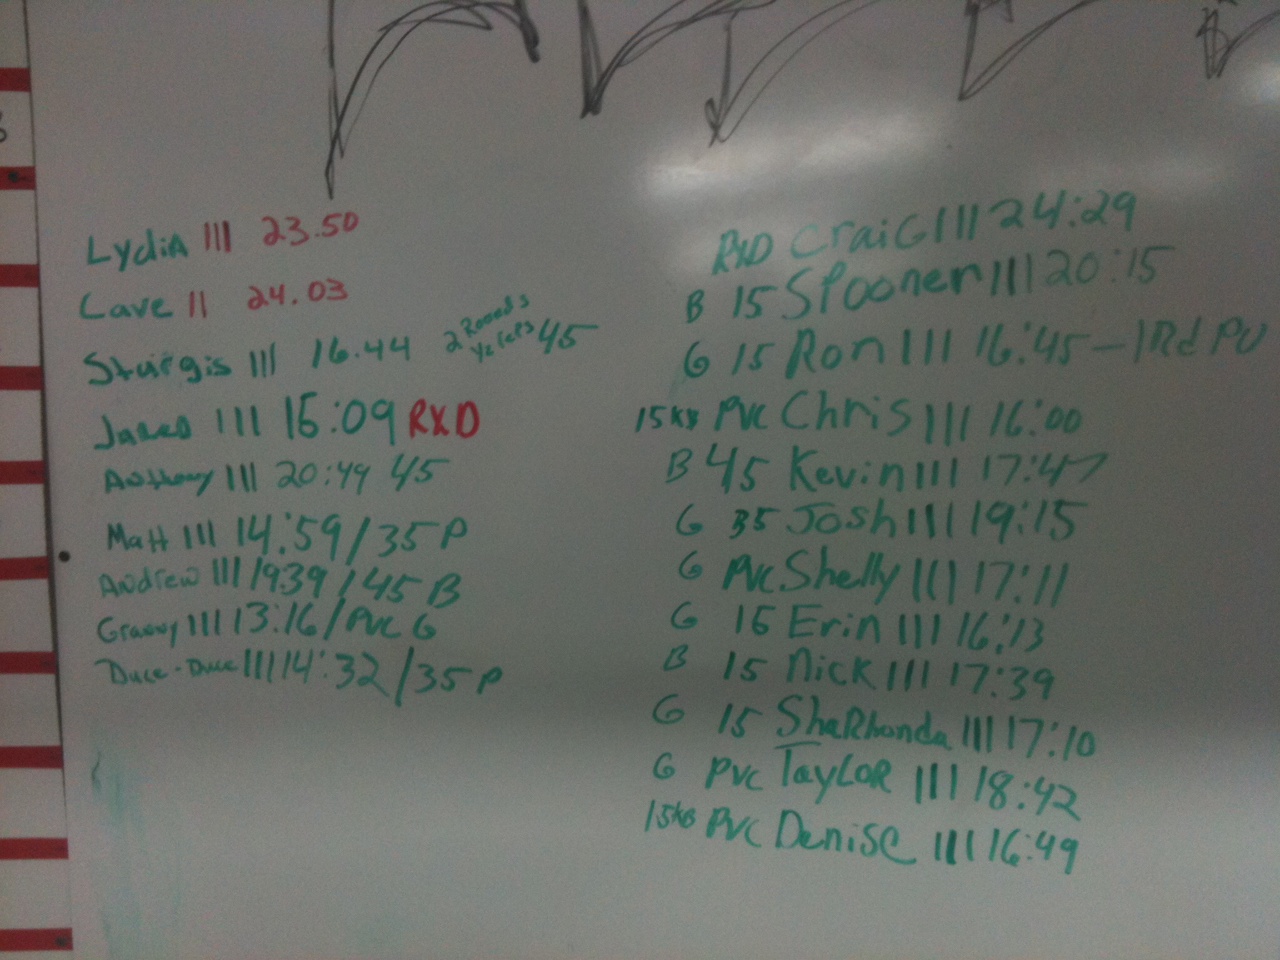 Lydia III 23.50
Cave II 24.03
Sturgis III 16.44 2 Rounds 1/2 reps 45
Jared III 15:09 RXD
Anthony III 20:49 45
Matt III 14:59/35 P
Andrew III 19:39/45 B
III 13:16/PVC G
Duce-Duce III 14:32/35 P
RXD Craig III 24:29
B 15 Spooner III 20:15
G 15 Ron III 16:45 - 1Rd PU
15KB PVC Chris III 16:00
B 45 Kevin III 17:47
G 35 Josh III 19:15
G PVC Shelly III 17:11
G 15 Erin III 16:13
B 15 Nick III 17:39
G 15 ShaRhonda III 17:10
G PVC TayLOR III 18:42
15KB PVC DeniSe III 16:49